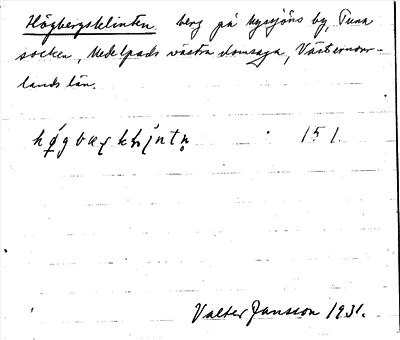 Högbergsklinten berg på Nysjöns by, Tuna
socken, Medelpads västra domsaga, Västernorr-
lands län.
151.
Valter Jansson 1931.